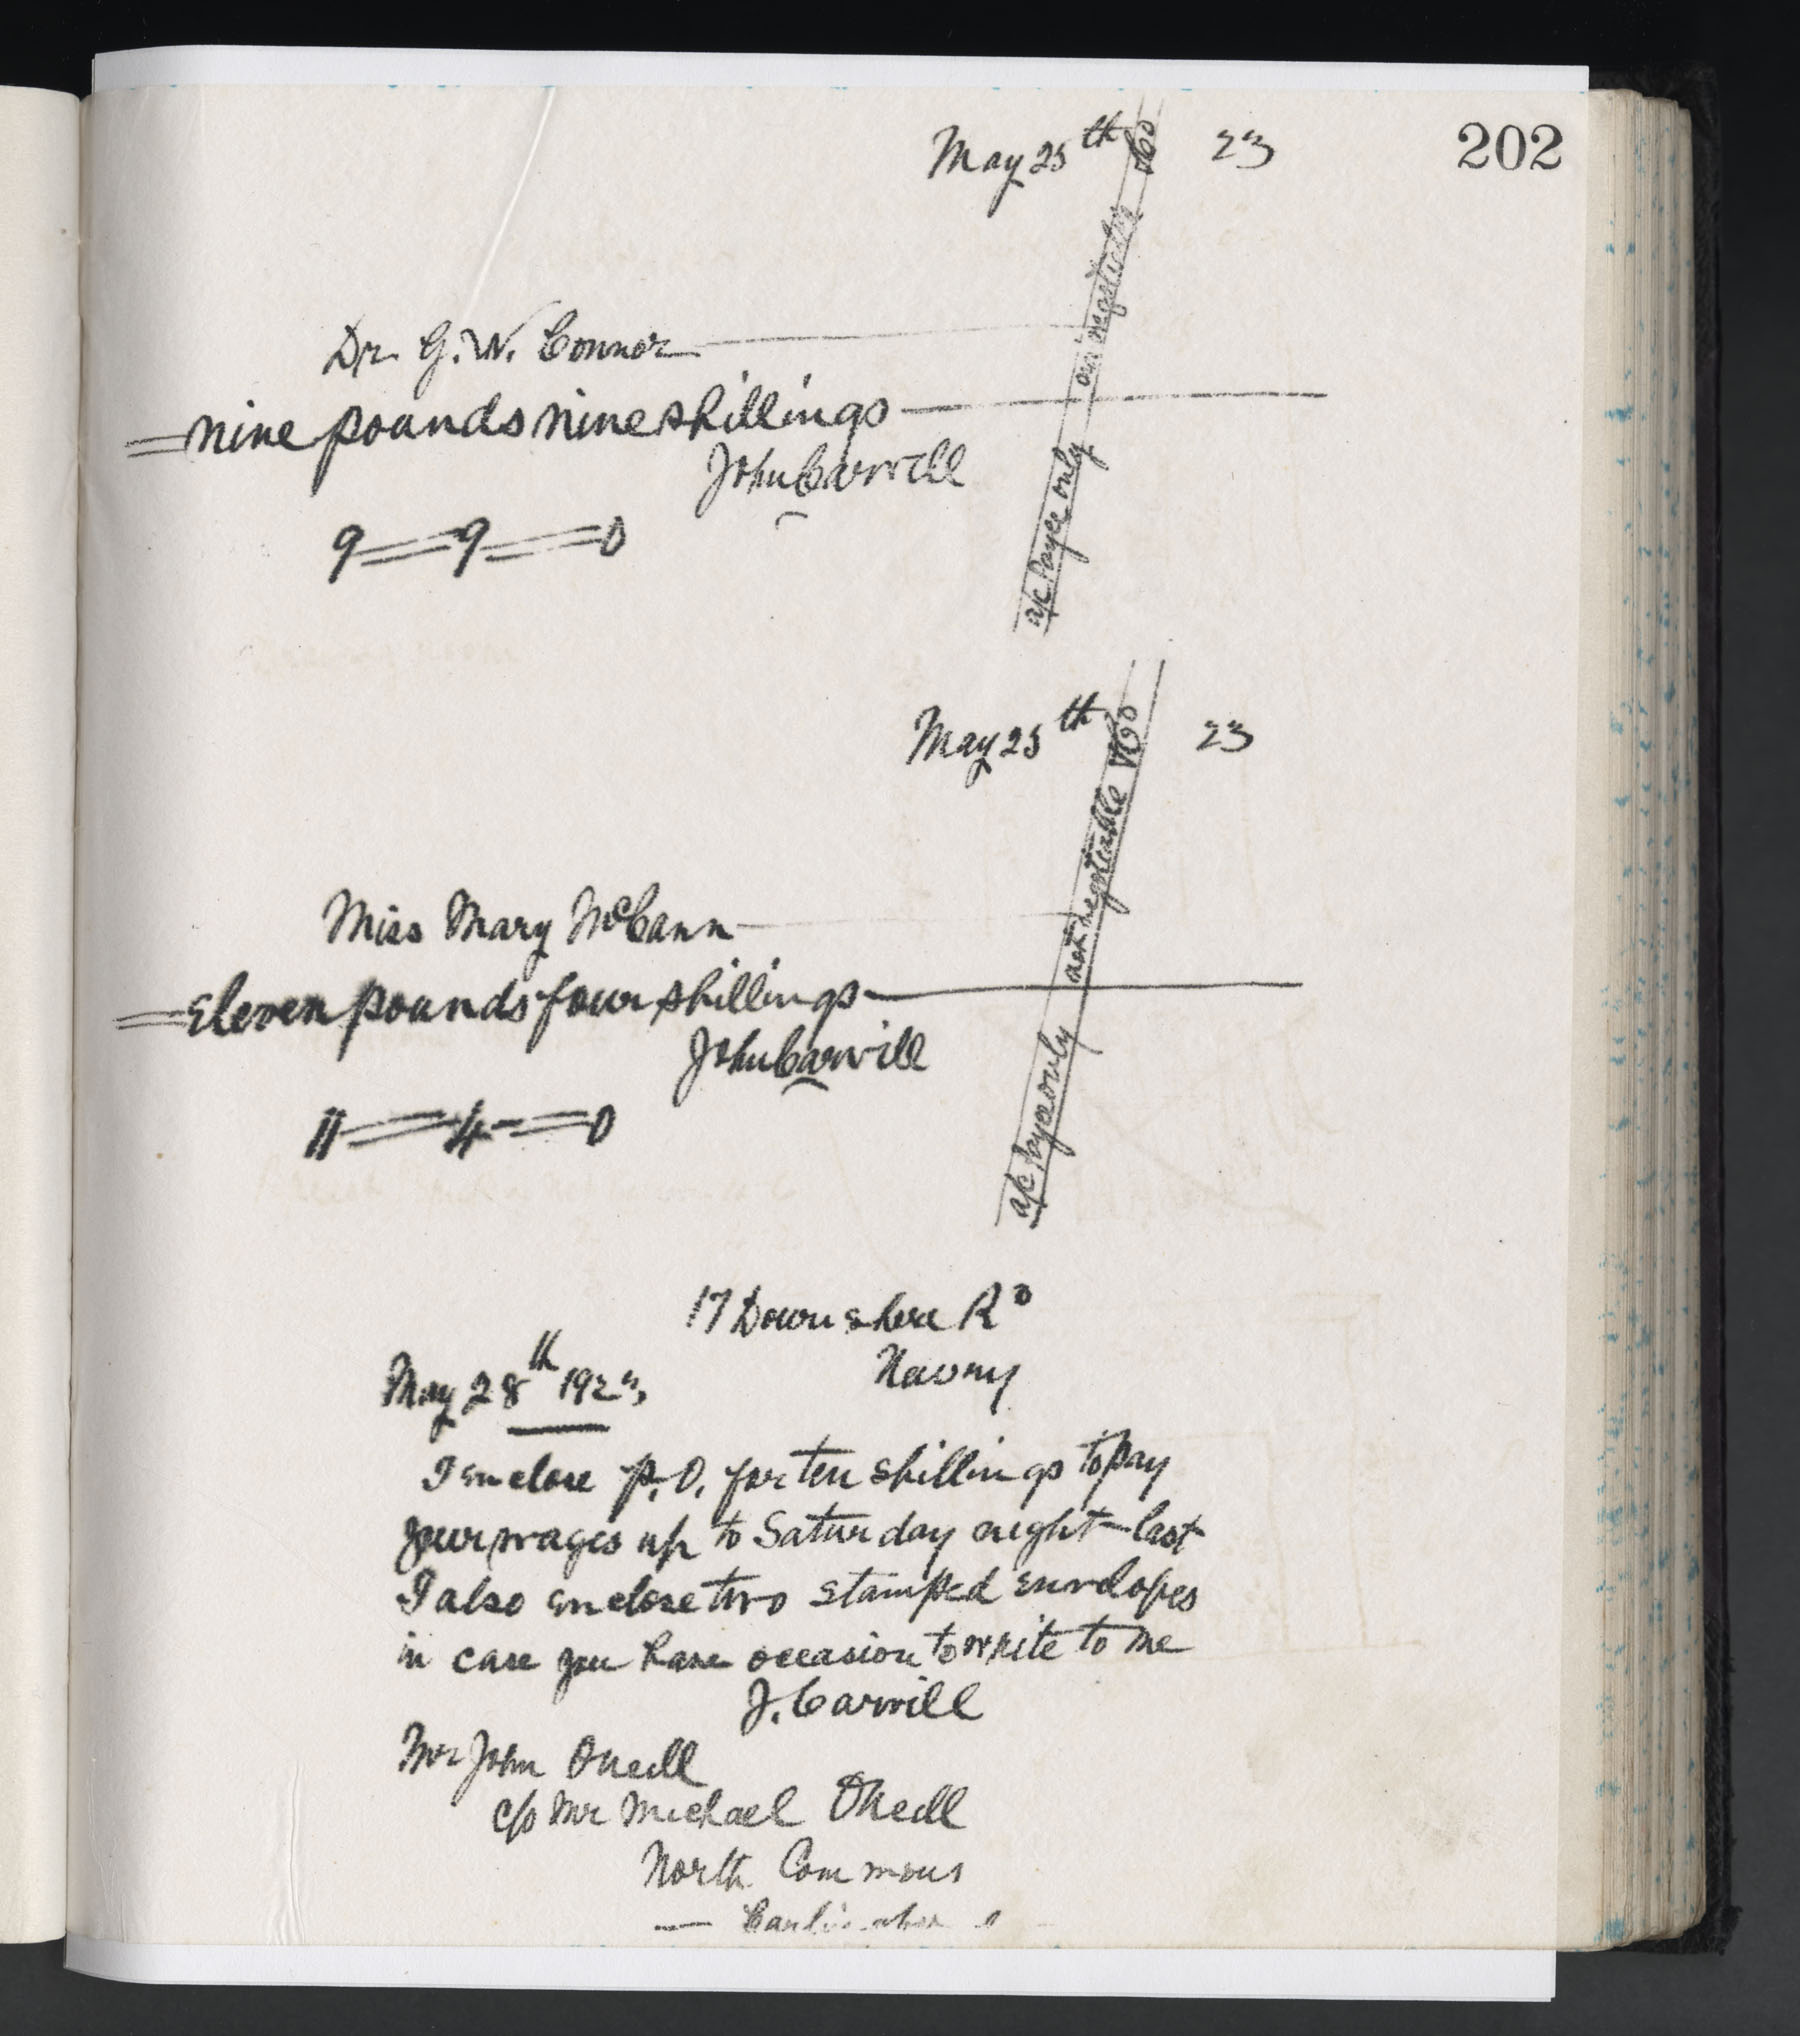 202
May 25th 23
a/c Payee only not negotiable &Co
Dr. G. W. Connor
nine pounds nine shillings
John Carvill
9=9=0
May 25th 23
a/c Payee only not negotiable &Co
Miss Mary McCann
Eleven pounds four shillings
John Carvill
11=4=0
17 Downshire Rd
Newry
May 28th 1923
I enclose P.O. for ten shillings to pay
your wages up to Saturday night last
I also enclose two stamped envelopes
in case you have occasion to write to me
J. Carvill
Mr John Oneill
c/o Mr Michael ONeill
North Commons
Carlingford